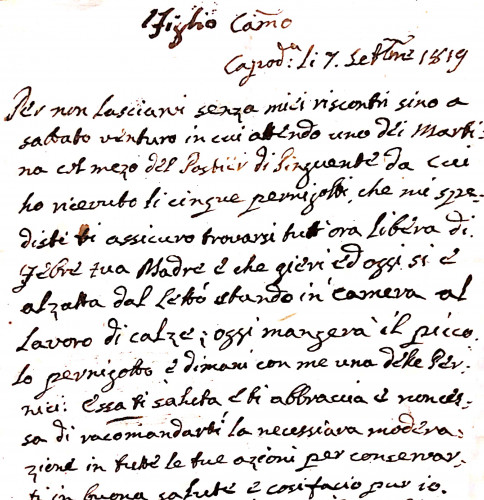 Figlio Carmo
Capod.a li 7. Settre 1819
Per non lasciarvi senza miei riscontri sino a
sabbato venturo in cui attendo uno dei Marti-
na col mezo del Postier di Pinguente da cui
ho ricevuto li cinque pernigotti, che mi spe-
disti ti assicuro trovarsi tutt'ora libera di
febre tua Madre e che gieri ed oggi si è
alzatta dal letto stando in camera al
lavoro di calze; oggi mangerà il picco-
lo pernigotto e dimani con me una delle Per-
nici: Essa ti saluta e ti abbraccia e non ces-
sa di racomandarti la necessiara modera-
zione in tutte le tue azioni per conservar-
ti in buona salute e così facio pur io.